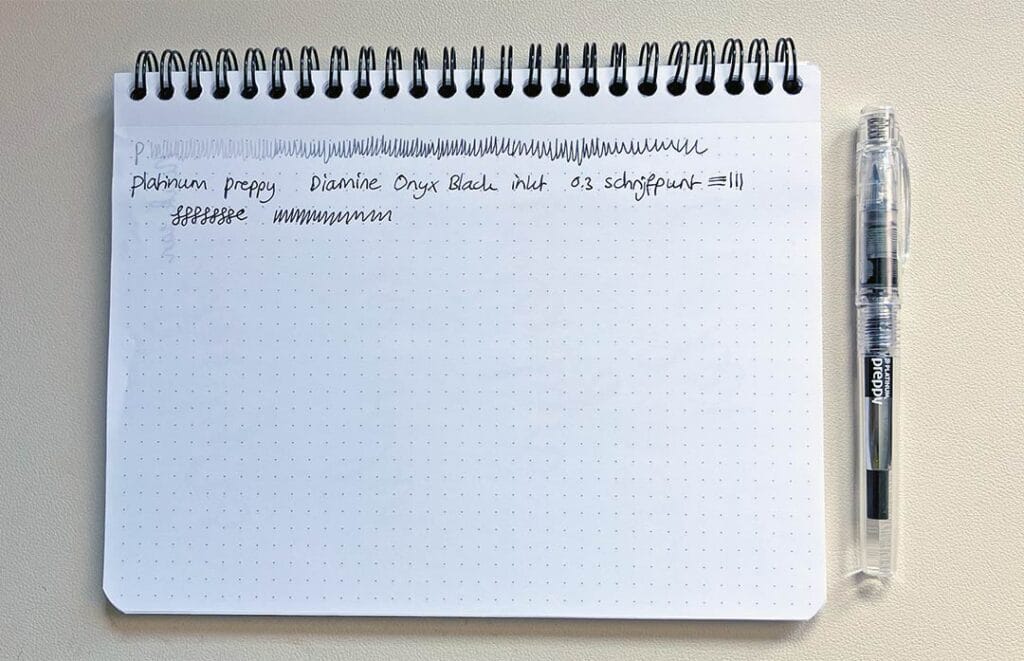 p
platinum preppy Diamine Onyx Black inkt 0.3 schrijfpunt
PLATINUM
preppy